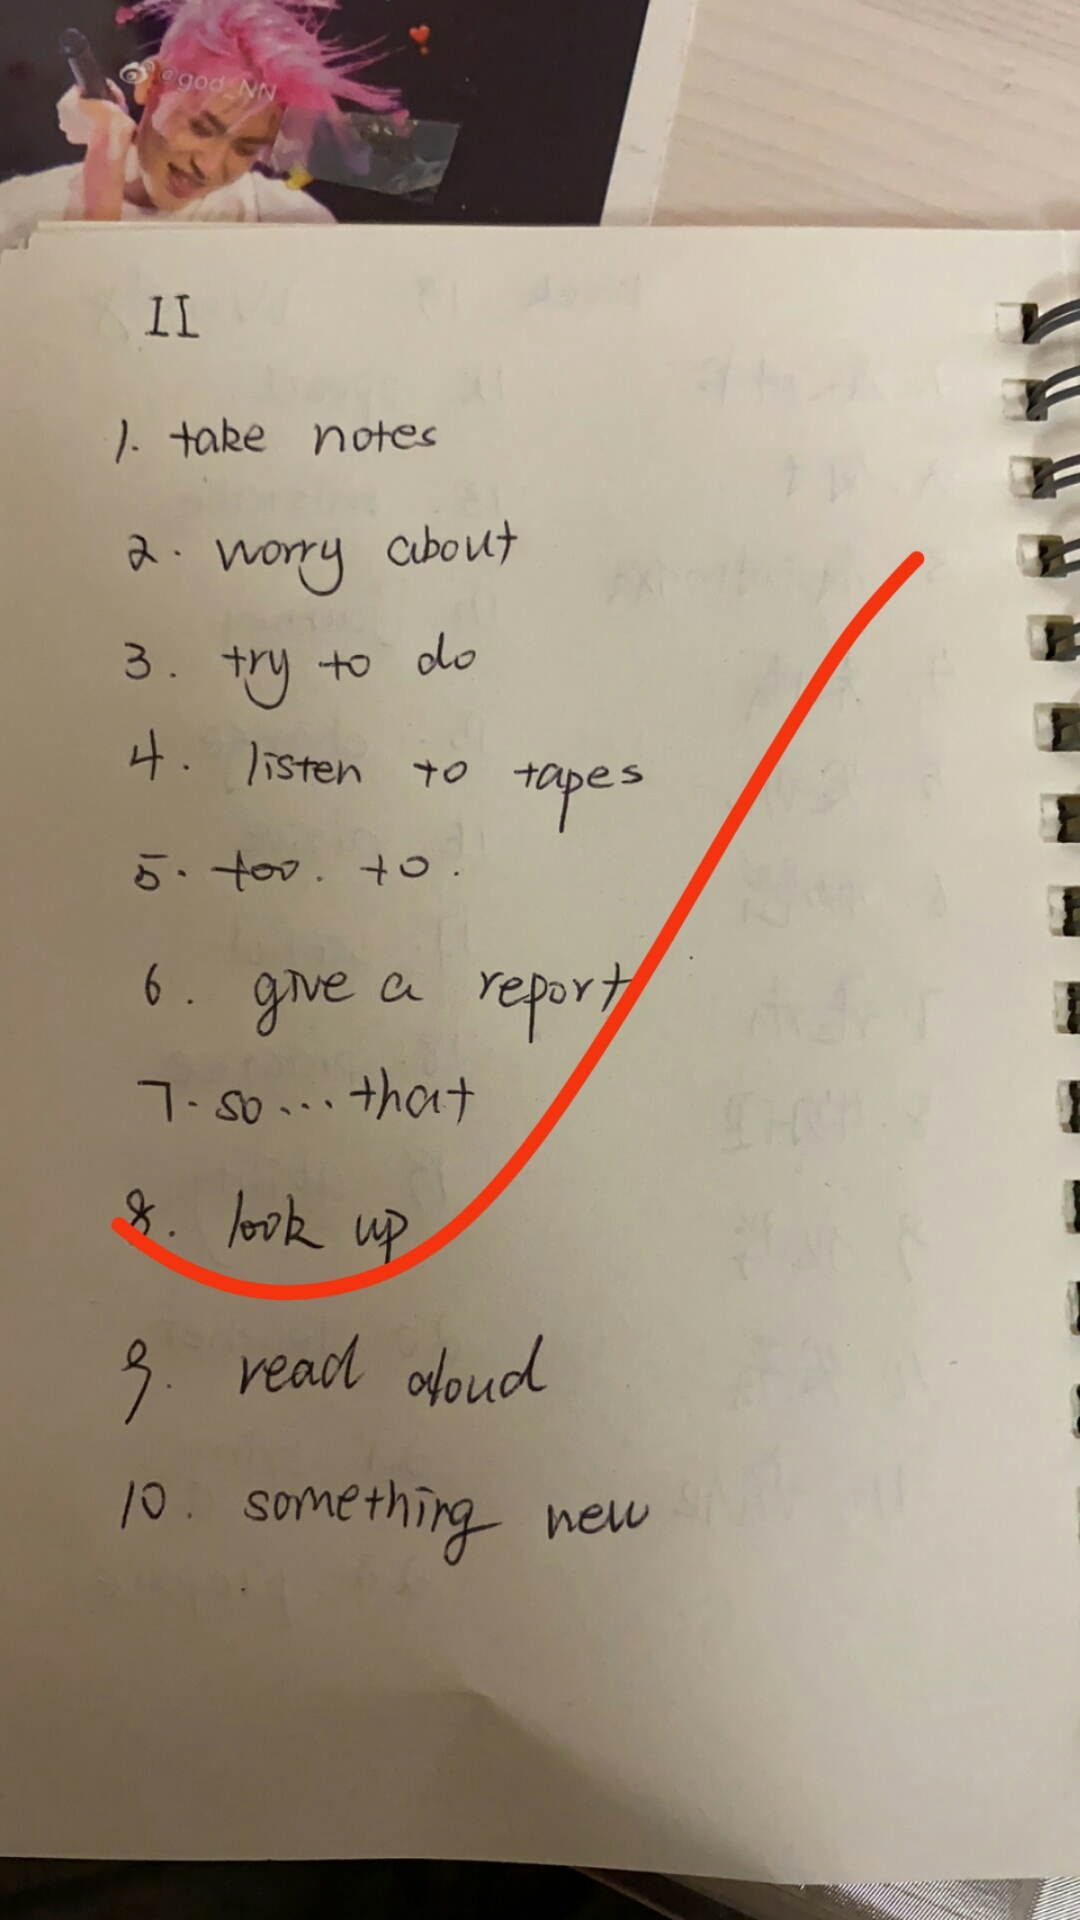 @god_NN
II
1. take notes
2. worry about
3. try to do
4. listen to tapes
5. too. to.
6. give a report
7. so...that
8. look up
9. read aloud
10. something new